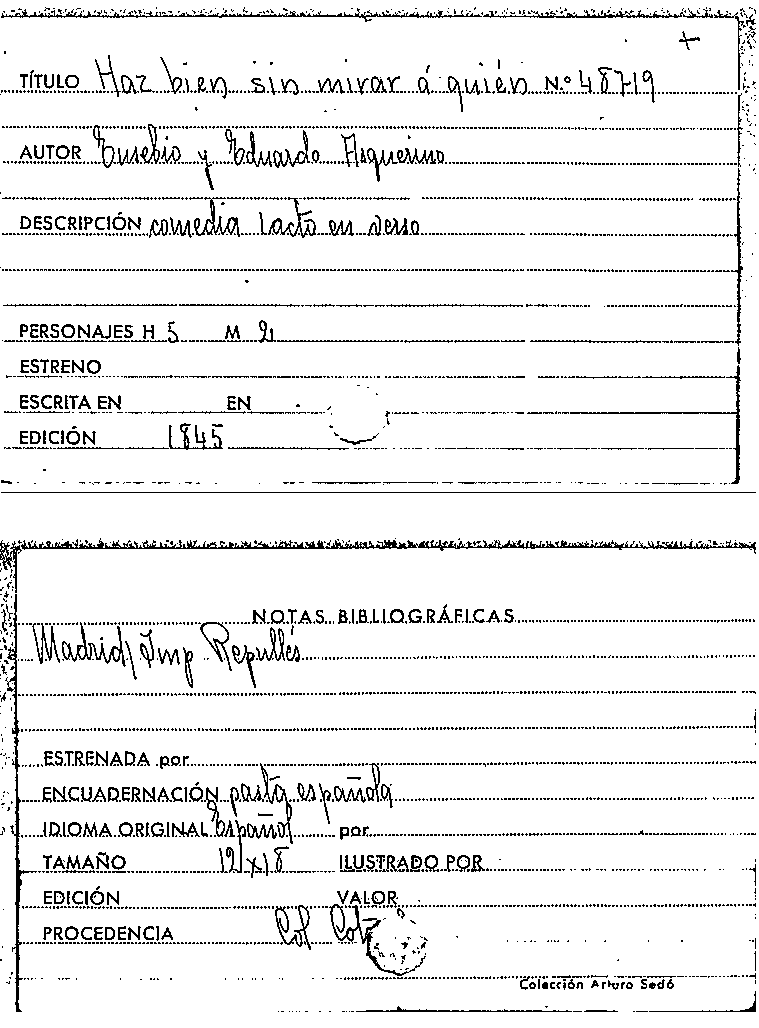 +
TÍTULO Haz bien sin mirar á quién N.º 48719
AUTOR Eusebio y Eduardo Asquerino
DESCRIPCIÓN comedia 1 acto en verso
PERSONAJES H 5 M 2
ESTRENO
ESCRITA EN EN
EDICIÓN 1845
NOTAS BIBLIOGRÁFICAS
Madrid/Imp Repullés
ESTRENADA por
ENCUADERNACIÓN pasta española
IDIOMA ORIGINAL Español por
TAMAÑO 12x18 ILUSTRADO POR
EDICIÓN VALOR
PROCEDENCIA Col
Colección Arturo Sedó